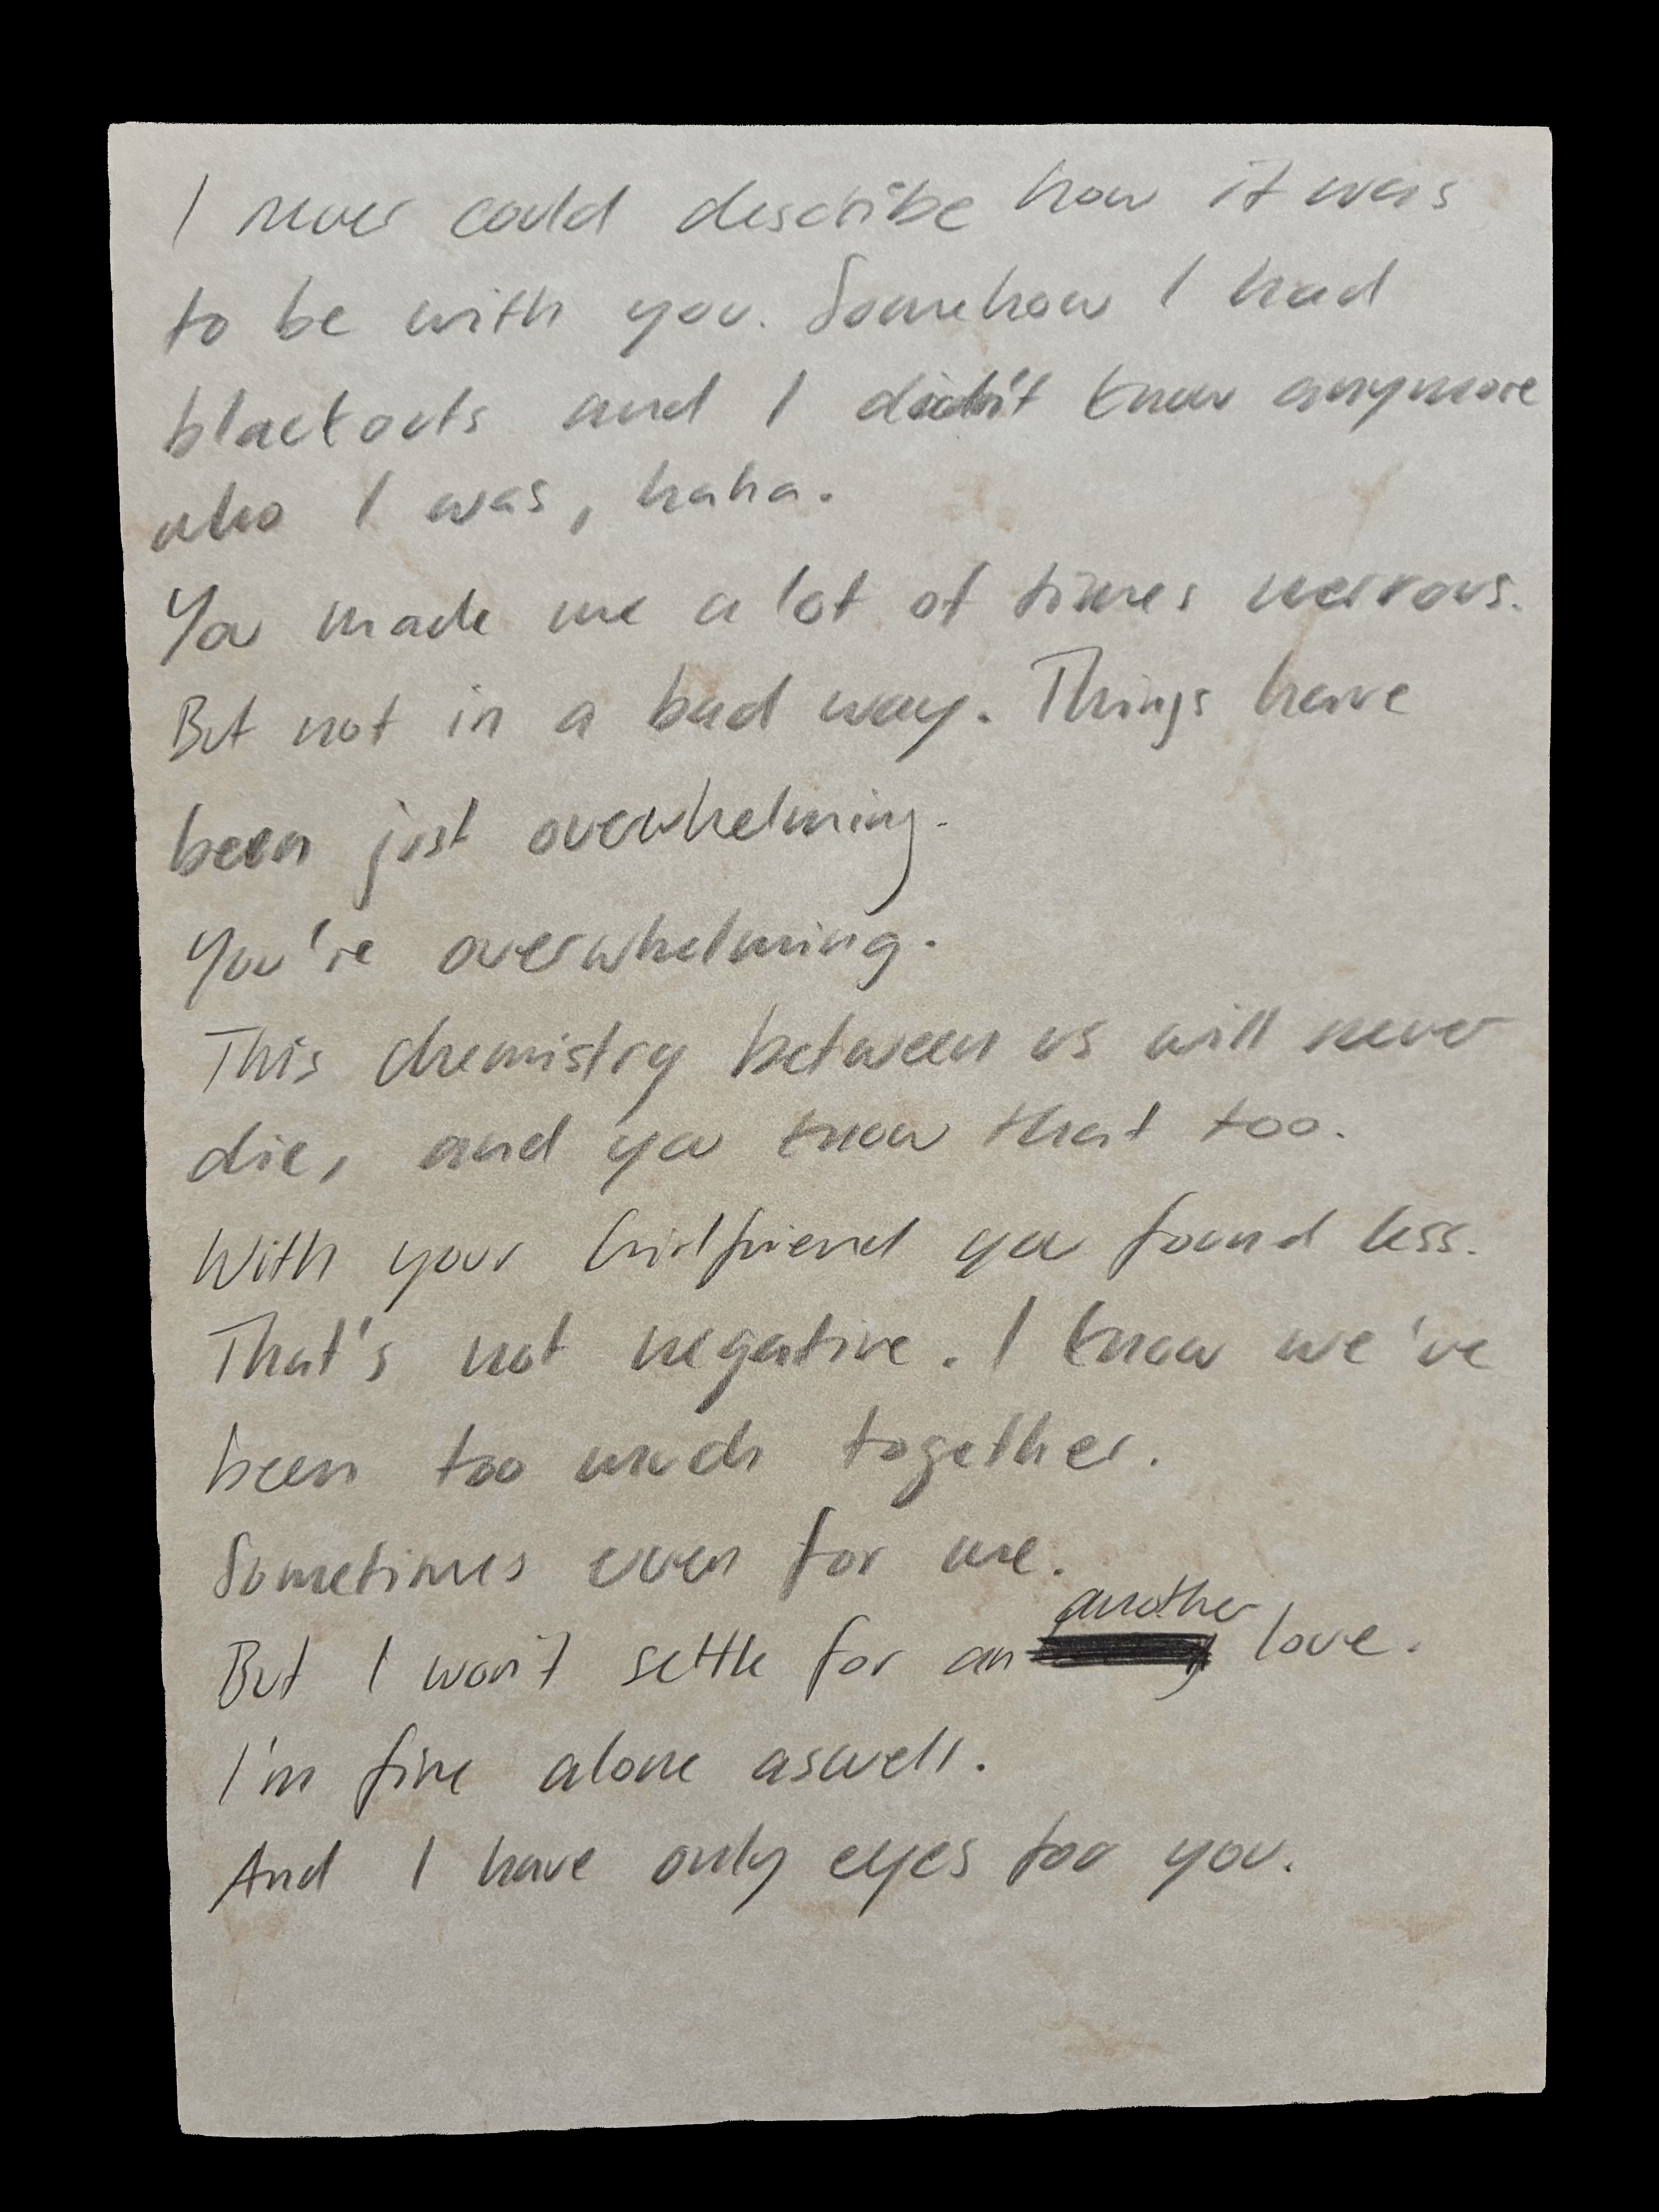 I never could describe how it was
to be with you. Somehow I had
blackouts and I didn't know anymore
who I was, haha.
You made me a lot of times nervous.
But not in a bad way. Things have
been just overwhelming.
You're overwhelming.
This chemistry between us will never
die, and you know that too.
With your Girlfriend you found less.
That's not negative. I know we've
been too much together.
Sometimes even for me.
another
But I won't settle for an love.
I'm fine alone aswell.
And I have only eyes for you.